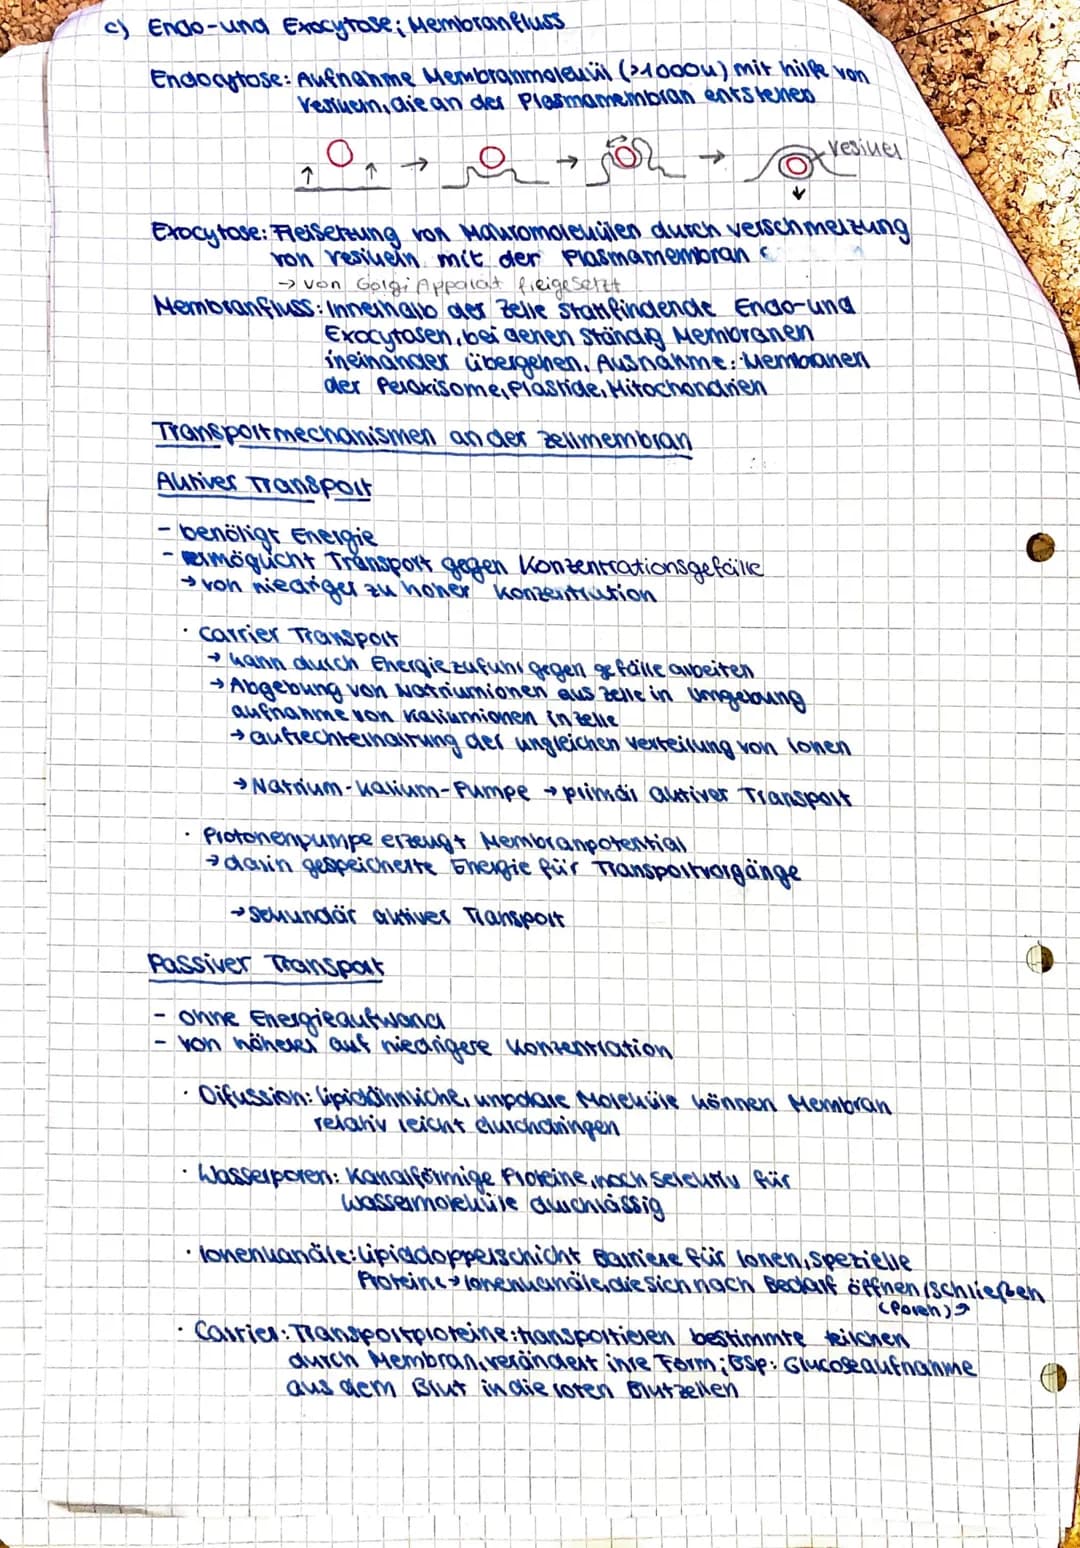 c) Endo-und Exocytose; Membranfluss
Endocytose: Aufnahme Membranmolekül (>1000u) mit hilfe von
Vesikeln, die an der Plasmamembran entstehen
Vesikel
Exocytose: Freisetzung von Makromolekülen durch verschmelzung
von vesikeln mit der Plasmamembran
→ von Golgi Apparat freigesetzt
Membranfluss: Innerhalb der Zelle stattfindende Endo-und
Exocytosen, bei denen Ständig Membranen
ineinander übergehen. Ausnahme: Membranen
der Peroxisome, Plastide, Mitochondrien
Transportmechanismen an der Zellmembran
Aktiver Transport
- benötigt Energie
- ermöglicht Transport gegen Konzentrationsgefälle
→ von niedriger zu hoher Konzentration
· Carrier Transport
→ kann durch Energiezufuhr gegen gefälle arbeiten
→ Abgebung von Natriumionen aus Zelle in Umgebung
aufnahme von Kaliumionen in Zelle
→ aufrechterhaltung der ungleichen verteilung von Ionen
→ Natrium-Kalium-Pumpe → primär aktiver Transport
· Protonenpumpe erzeugt Membranpotential
→ darin gespeicherte Energie für Transportvorgänge
→ Sekundär aktiver Transport
Passiver Transport
- ohne Energieaufwand
- von höherer auf niedrigere Konzentration
· Difussion: lipidähnliche, unpolare Moleküle können Membran
relativ leicht durchdringen
· Wasserporen: Kanalförmige Proteine, hoch selektiv für
Wassermoleküle durchlässig
· Ionenkanäle: Lipiddoppelschicht Barriere für Ionen, spezielle
Proteine → Ionenkanäle, die sich nach Bedarf öffnen/schließen
(Poren)
· Carrier: Transportproteine: transportieren bestimmte teilchen
durch Membran, verändert ihre Form; BSP: Glucoseaufnahme
aus dem Blut in die roten Blutzellen